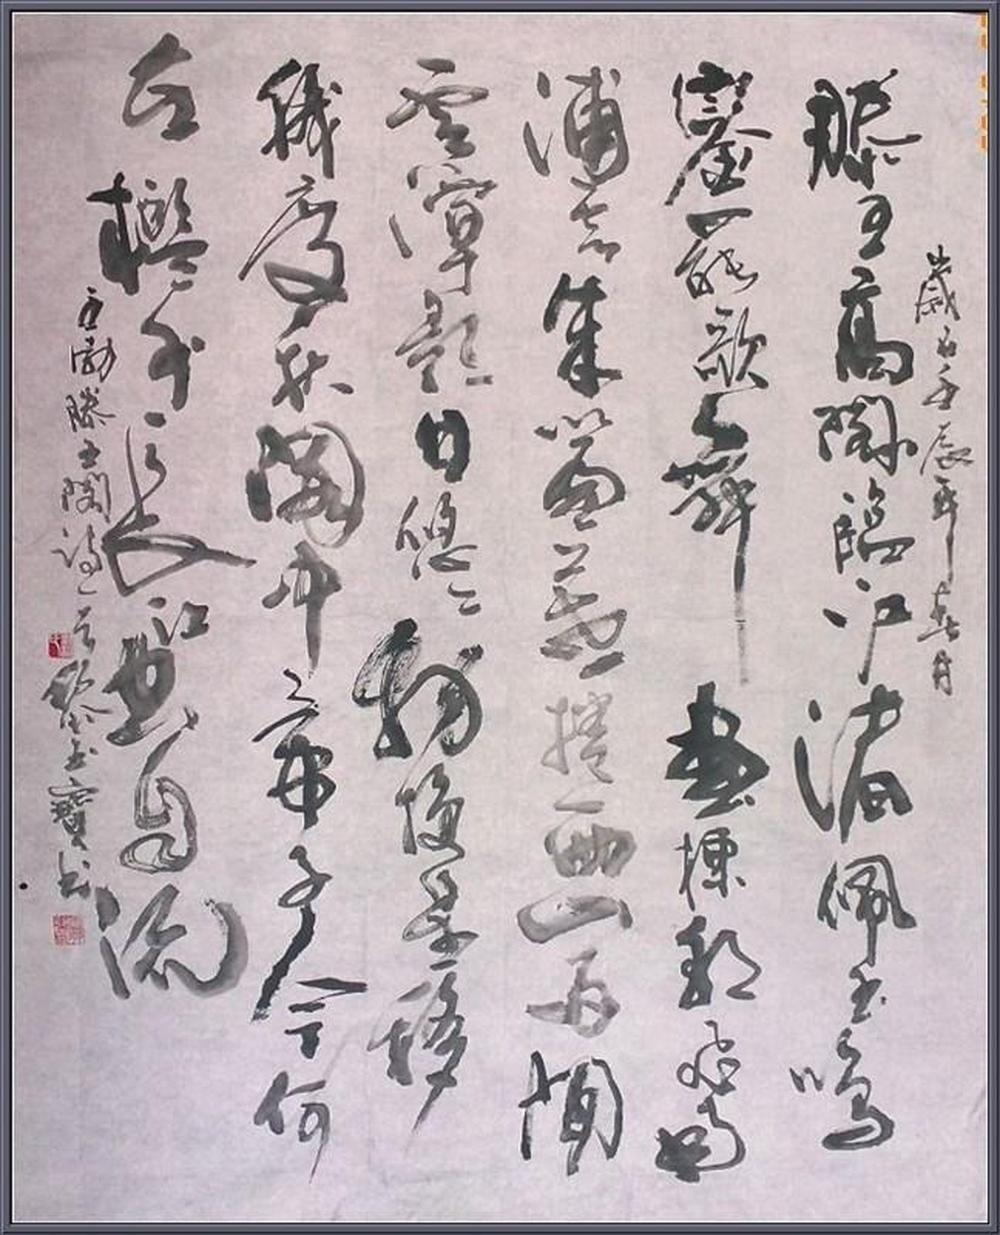 歲在壬辰年春月
滕王高閣臨江渚佩玉鳴
鑾罷歌舞畫棟朝飛南
浦雲朱簾暮捲西山雨閒
雲潭影日悠々物換星移
幾度秋閣中帝子今何
在檻外長江空自流
王勃滕王閣詩一首黎玉寶書